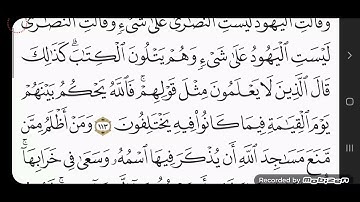 وَقَالَتِ ٱلْيَهُودُ لَيْسَتِ ٱلنَّصَٰرَىٰ عَلَىٰ شَىْءٍ وَقَالَتِ ٱلنَّصَٰرَىٰ
لَيْسَتِ ٱلْيَهُودُ عَلَىٰ شَىْءٍ وَهُمْ يَتْلُونَ ٱلْكِتَٰبَ ۗ كَذَٰلِكَ
قَالَ ٱلَّذِينَ لَا يَعْلَمُونَ مِثْلَ قَوْلِهِمْ ۚ فَٱللَّهُ يَحْكُمُ بَيْنَهُمْ
يَوْمَ ٱلْقِيَٰمَةِ فِيمَا كَانُوا۟ فِيهِ يَخْتَلِفُونَ ١١٣ وَمَنْ أَظْلَمُ مِمَّن
مَّنَعَ مَسَٰجِدَ ٱللَّهِ أَن يُذْكَرَ فِيهَا ٱسْمُهُۥ وَسَعَىٰ فِى خَرَابِهَآ ۚ
Recorded by
Mobizen